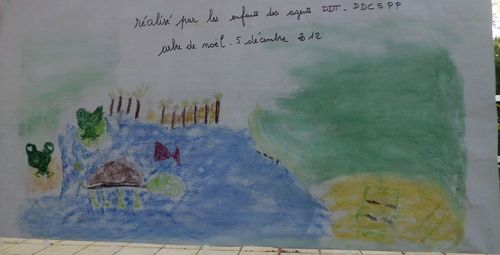 réalisé par les enfants des agents DDT - DDCSPP
arbre de noël. 5 décembre 2012